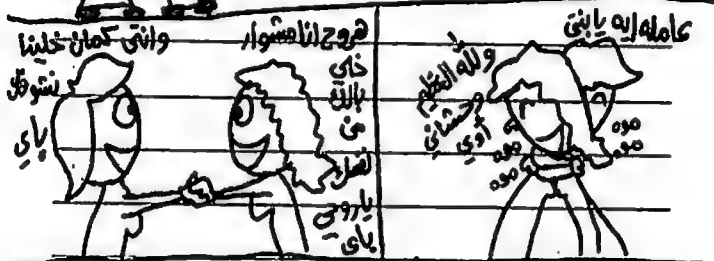 عامله ايه يا بنتي
والله العظيم
وحشاني
أوي
موه
موه
موه
موه
موه
موه
هروح انا مشوار
خلي
بالك
من
نفسك
يا روحي
باي
وانتي كمان خلينا
نشوفك
باي